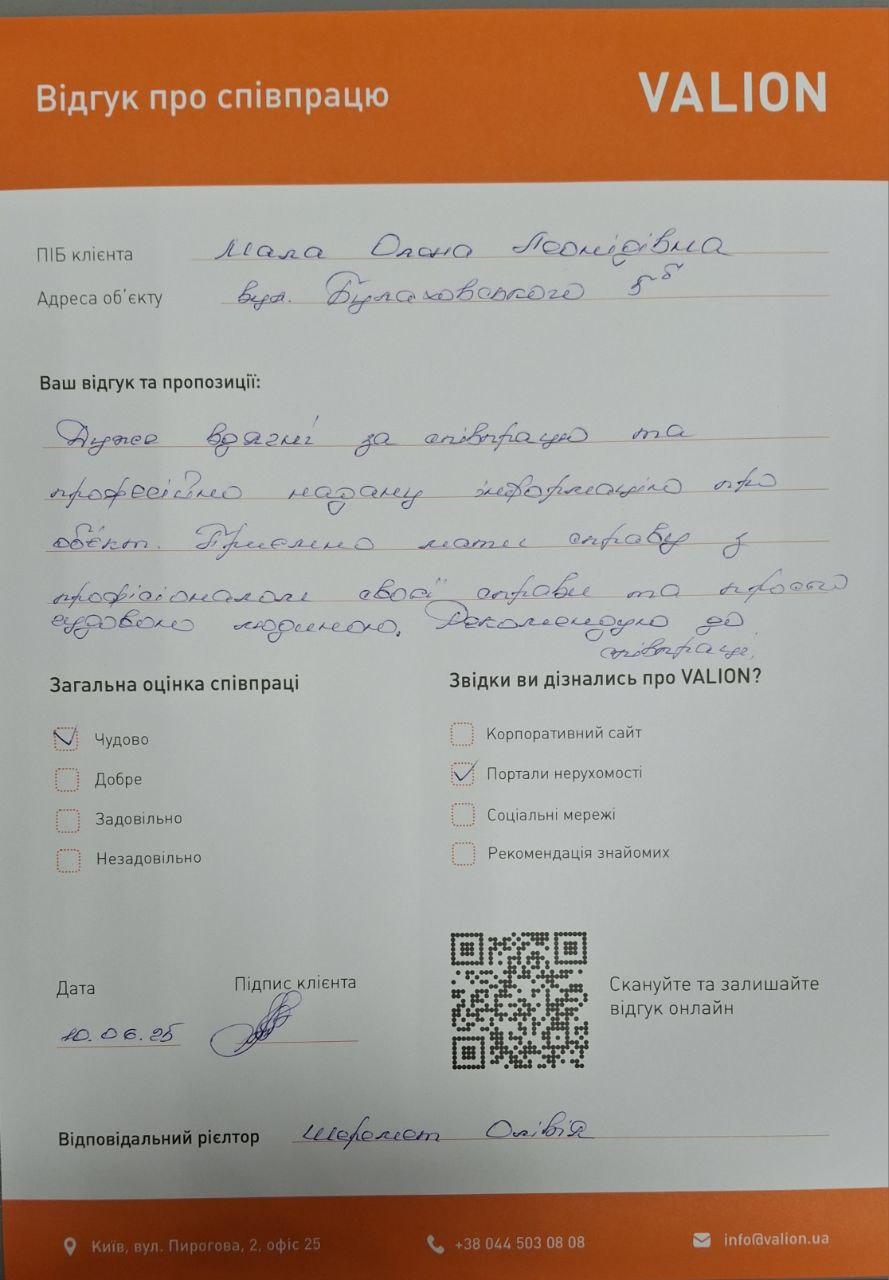 Відгук про співпрацю
VALION
ПІБ клієнта Мала Олена Леонідівна
Адреса об'єкту вул. Булаховського 5б
Ваш відгук та пропозиції:
Дуже вдячні за співпрацю та
професійно надану інформацію про
об'єкт. Приємно мати справу з
професіоналом своєї справи та просто
чудовою людиною. Рекомендую до
співпраці.
Загальна оцінка співпраці
Чудово
Добре
Задовільно
Незадовільно
Звідки ви дізнались про VALION?
Корпоративний сайт
Портали нерухомості
Соціальні мережі
Рекомендація знайомих
Дата
10.06.25
Підпис клієнта
Скануйте та залишайте
відгук онлайн
Відповідальний рієлтор Шеремет Олівія
Київ, вул. Пирогова, 2, офіс 25
+38 044 503 08 08
info@valion.ua